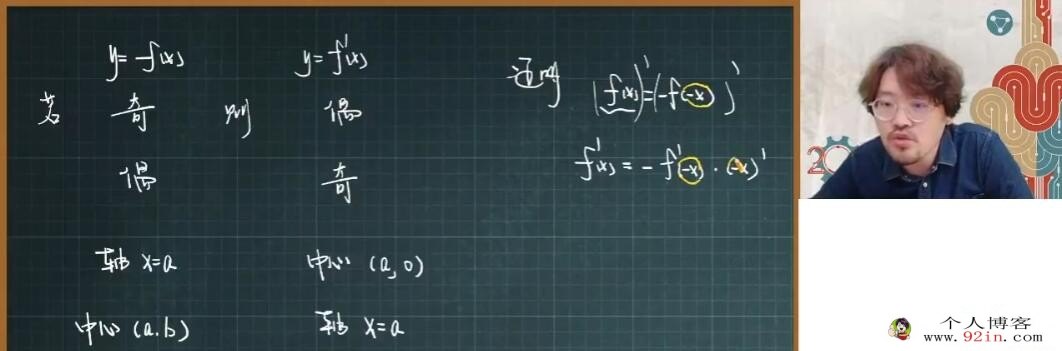 y=f(x) y=f'(x)
若 奇 则 偶
偶 奇
轴 x=a 中心 (a,0)
中心 (a.b) 轴 x=a
证明 (f(x))'=(-f(-x))'
f'(x)=-f'(-x)·(-x)'
20
个人博客
www.92in.com